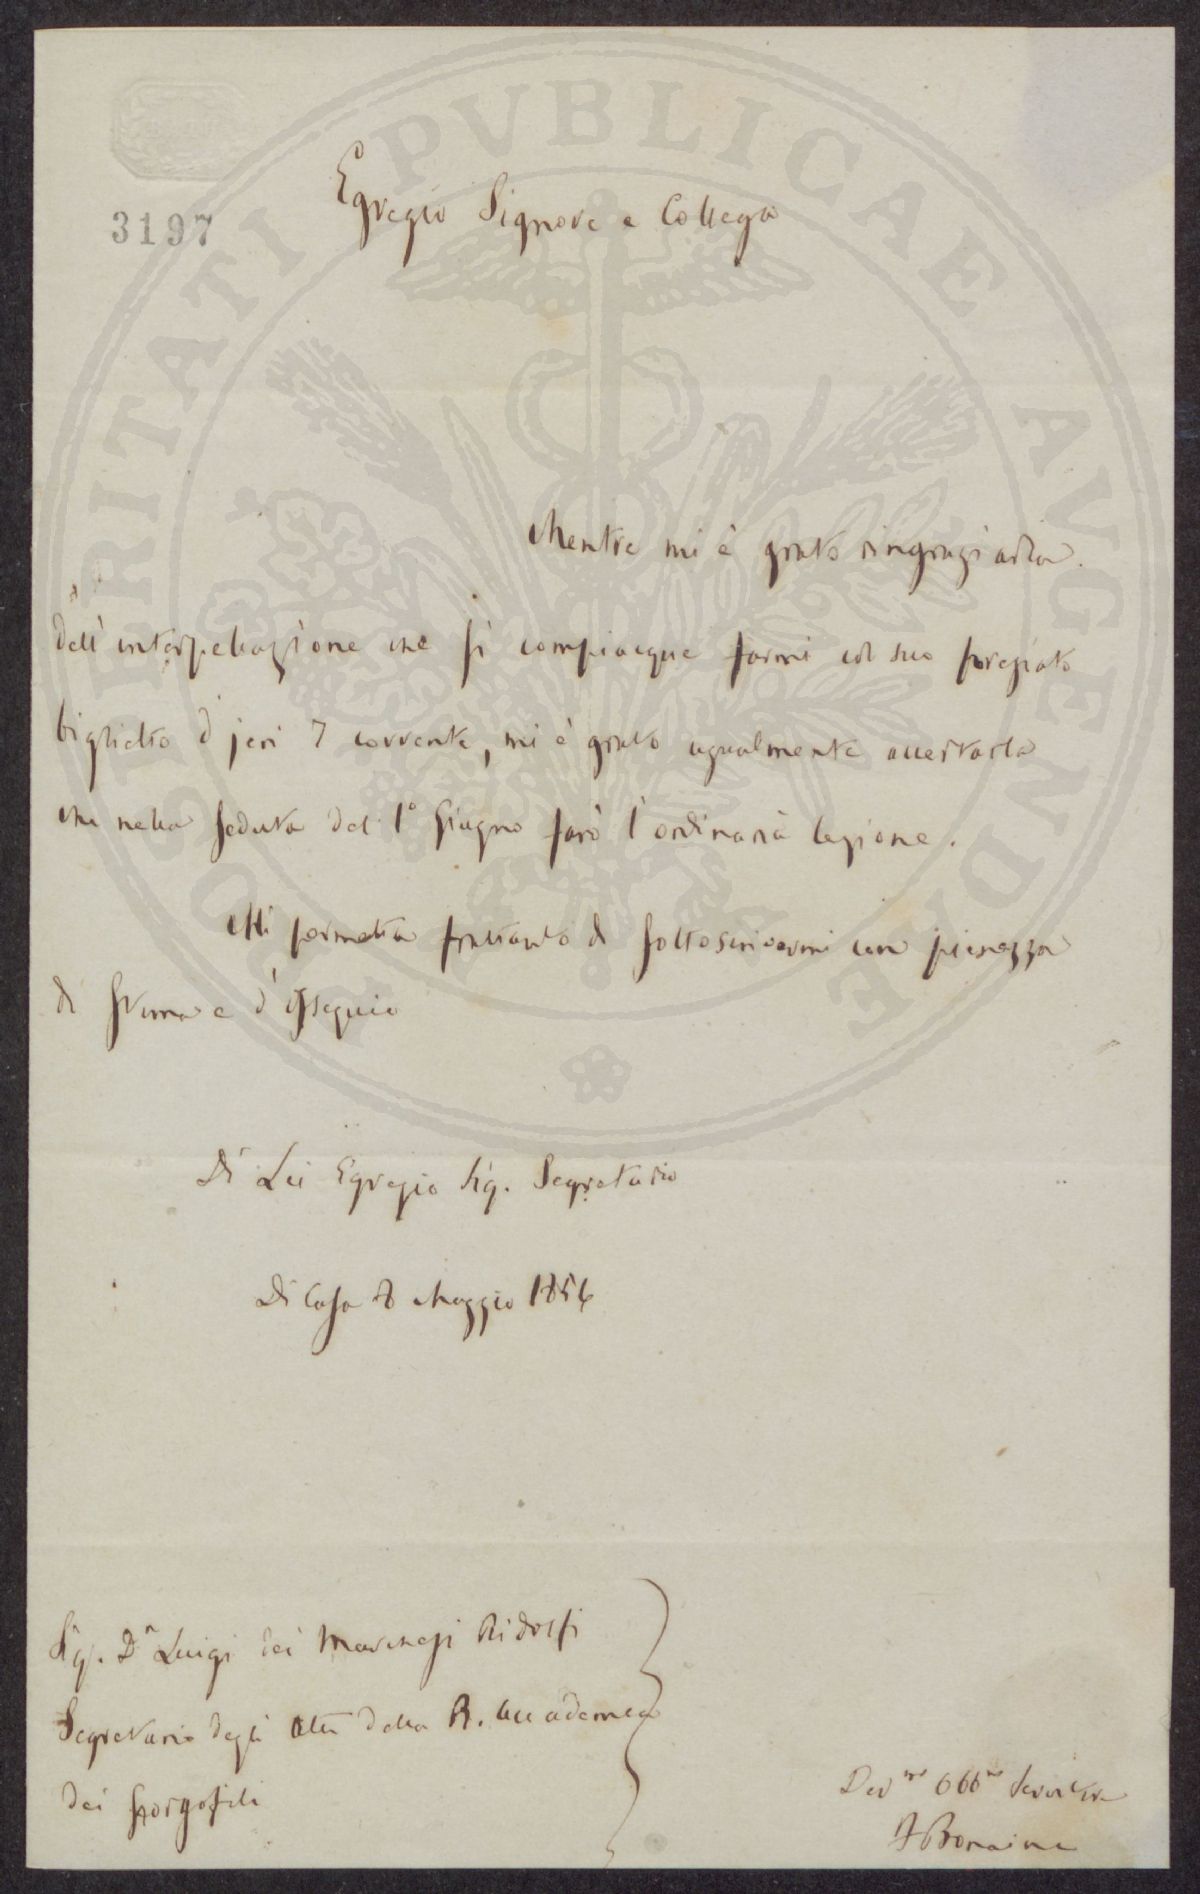 PROSPERITATI PVBLICAE AVGENDAE
3197
Egregio Signore e Collega
Mentre mi è grato ringraziarla
dell'interpellazione che si compiacque farmi col suo pregiato
biglietto d'jeri 7 corrente, mi è grato ugualmente accertarla
che nella seduta del 1° Giugno farò l'ordinaria lezione.
Mi permetta frattanto di sottoscrivermi con pienezza
di stima e d'ossequio
Di Lei Egregio Sig. Segretario
Di Casa 8 Maggio 1856
Sig. Dr Luigi dei Marchesi Ridolfi
Segretario degli Atti della R. Accademia
dei Georgofili
Devmo Obbmo Servitore
F Bonaini